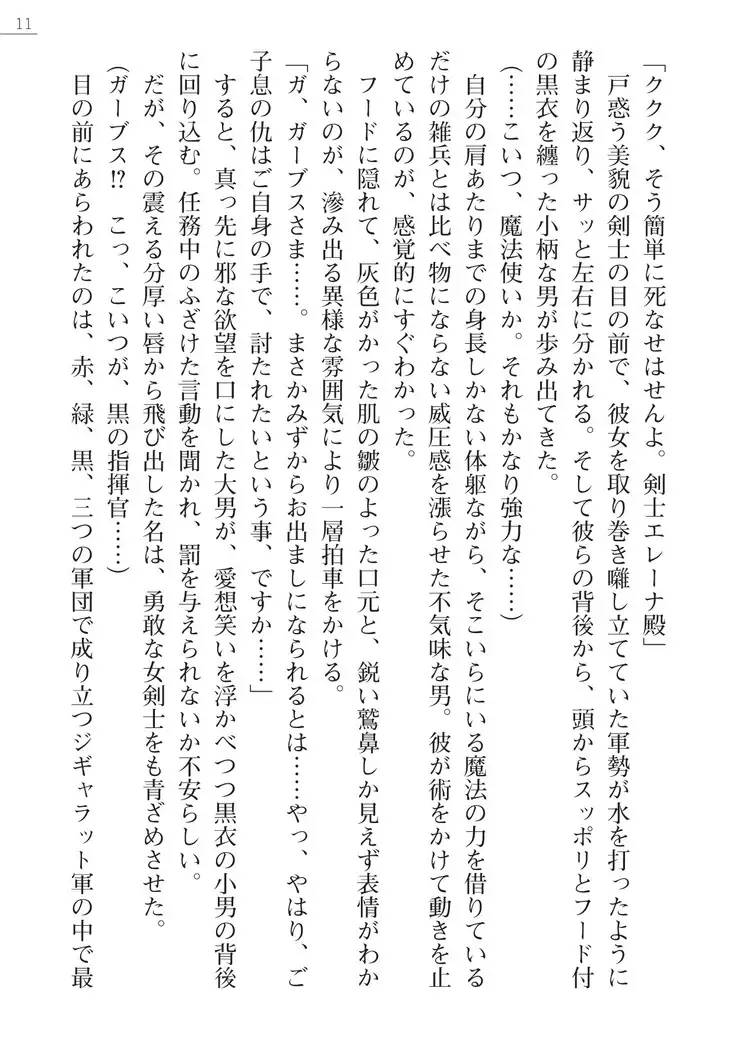 11
「ククク、そう簡単に死なせはせんよ。剣士エレーナ殿」
戸惑う美貌の剣士の目の前で、彼女を取り巻き囃し立てていた軍勢が水を打ったように
静まり返り、サッと左右に分かれる。そして彼らの背後から、頭からスッポリとフード付
の黒衣を纏った小柄な男が歩み出てきた。
(……こいつ、魔法使いか。それもかなり強力な……)
自分の肩あたりまでの身長しかない体躯ながら、そこいらにいる魔法の力を借りている
だけの雑兵とは比べ物にならない威圧感を漲らせた不気味な男。彼が術をかけて動きを止
めているのが、感覚的にすぐわかった。
フードに隠れて、灰色がかった肌の皺のよった口元と、鋭い鷲鼻しか見えず表情がわか
らないのが、滲み出る異様な雰囲気により一層拍車をかける。
「ガ、ガーブスさま……。まさかみずからお出ましになられるとは……やっ、やはり、ご
子息の仇はご自身の手で、討たれたいという事、ですか……」
すると、真っ先に邪な欲望を口にした大男が、愛想笑いを浮かべつつ黒衣の小男の背後
に回り込む。任務中のふざけた言動を聞かれ、罰を与えられないか不安らしい。
だが、その震える分厚い唇から飛び出した名は、勇敢な女剣士をも青ざめさせた。
(ガーブス!? こっ、こいつが、黒の指揮官……)
目の前にあらわれたのは、赤、緑、黒、三つの軍団で成り立つジギャラット軍の中で最